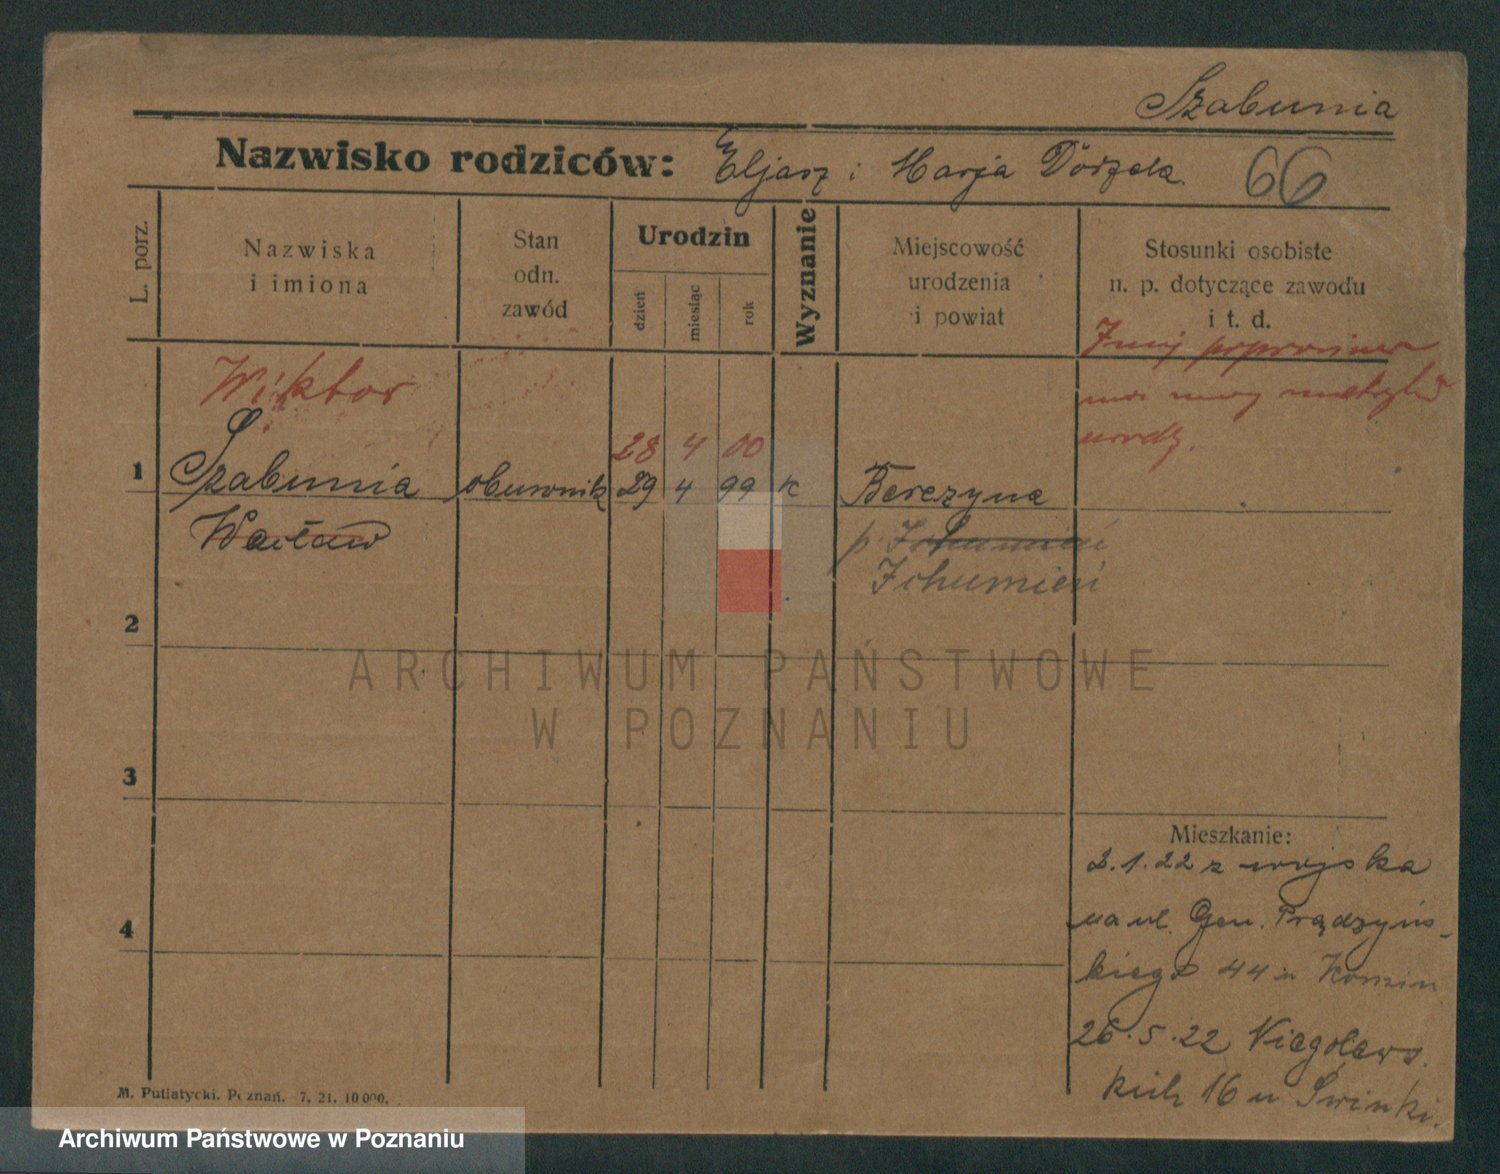 Szabunia
Nazwisko rodziców: Eljasz i Marja Dörzek 66
L. porz.
Nazwiska
i imiona
Stan
odn.
zawód
Urodzin
dzień
miesiąc
rok
Wyznanie
Miejscowość
urodzenia
i powiat
Stosunki osobiste
n. p. dotyczące zawodu
i t. d.
urodz.
Wiktor
28 4 00
1 Szabunia obuwnik 29 4 99 K Berezyna
Wacław
p. Ihumień
Ihumień
2
3
4
Mieszkanie:
2.1.22 z wojska
na ul. Gen. Prądzyńs-
kiego 44 u
26.5.22 Niegolews.
kich 16 u Świnki.
M. Putiatycki. Poznań. - 7. 21. 10000.
ARCHIWUM PAŃSTWOWE
W POZNANIU
Archiwum Państwowe w Poznaniu